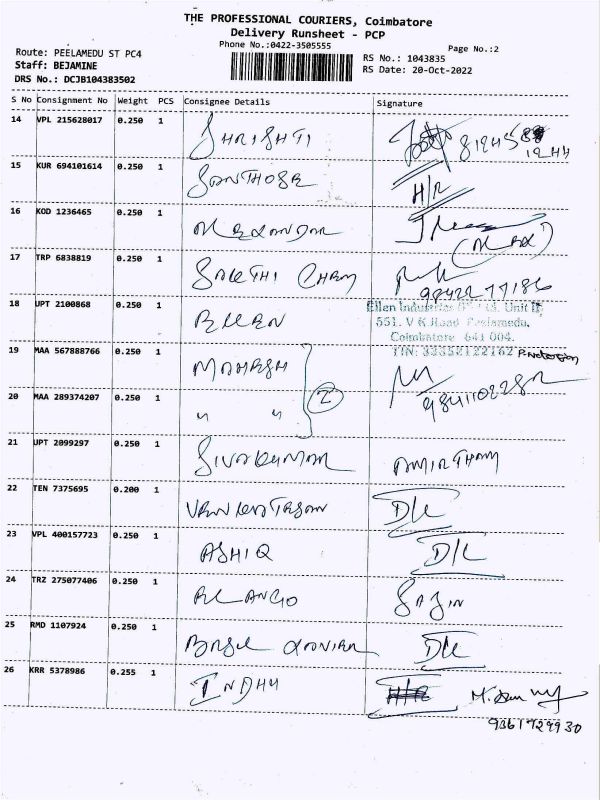 THE PROFESSIONAL COURIERS, Coimbatore
Delivery Runsheet - PCP
Phone No.:0422-3505555
Page No.:2
Route: PEELAMEDU ST PC4
RS No.: 1043835
Staff: BEJAMINE
RS Date: 20-Oct-2022
DRS No.: DCJB104383502
S No Consignment No Weight PCS Consignee Details Signature
14 VPL 215628017 0.250 1 SHRISHTI
15 KUR 694101614 0.250 1 SANTHOSH H/R
16 KOD 1236465 0.250 1 ALEXANDAR (ALEX)
17 TRP 6838819 0.250 1 SAKTHI 9842277186
18 UPT 2100868 0.250 1 ELLEN
Ellen Industries Unit II,
551, V K Road Peelamedu,
Coimbatore 641 004.
TIN: 33352122162
19 MAA 567888766 0.250 1 MAHESH
20 MAA 289374207 0.250 1 " " 2
21 UPT 2099297 0.250 1 SIVAKUMAR AMIRTHAM
22 TEN 7375695 0.200 1 VENKATESAN D/L
23 VPL 400157723 0.250 1 ASHIQ D/L
24 TRZ 275077406 0.250 1 ELANGO SAJIN
25 RMD 1107924 0.250 1 D/L
26 KRR 5378986 0.255 1 INDHU
9361729930